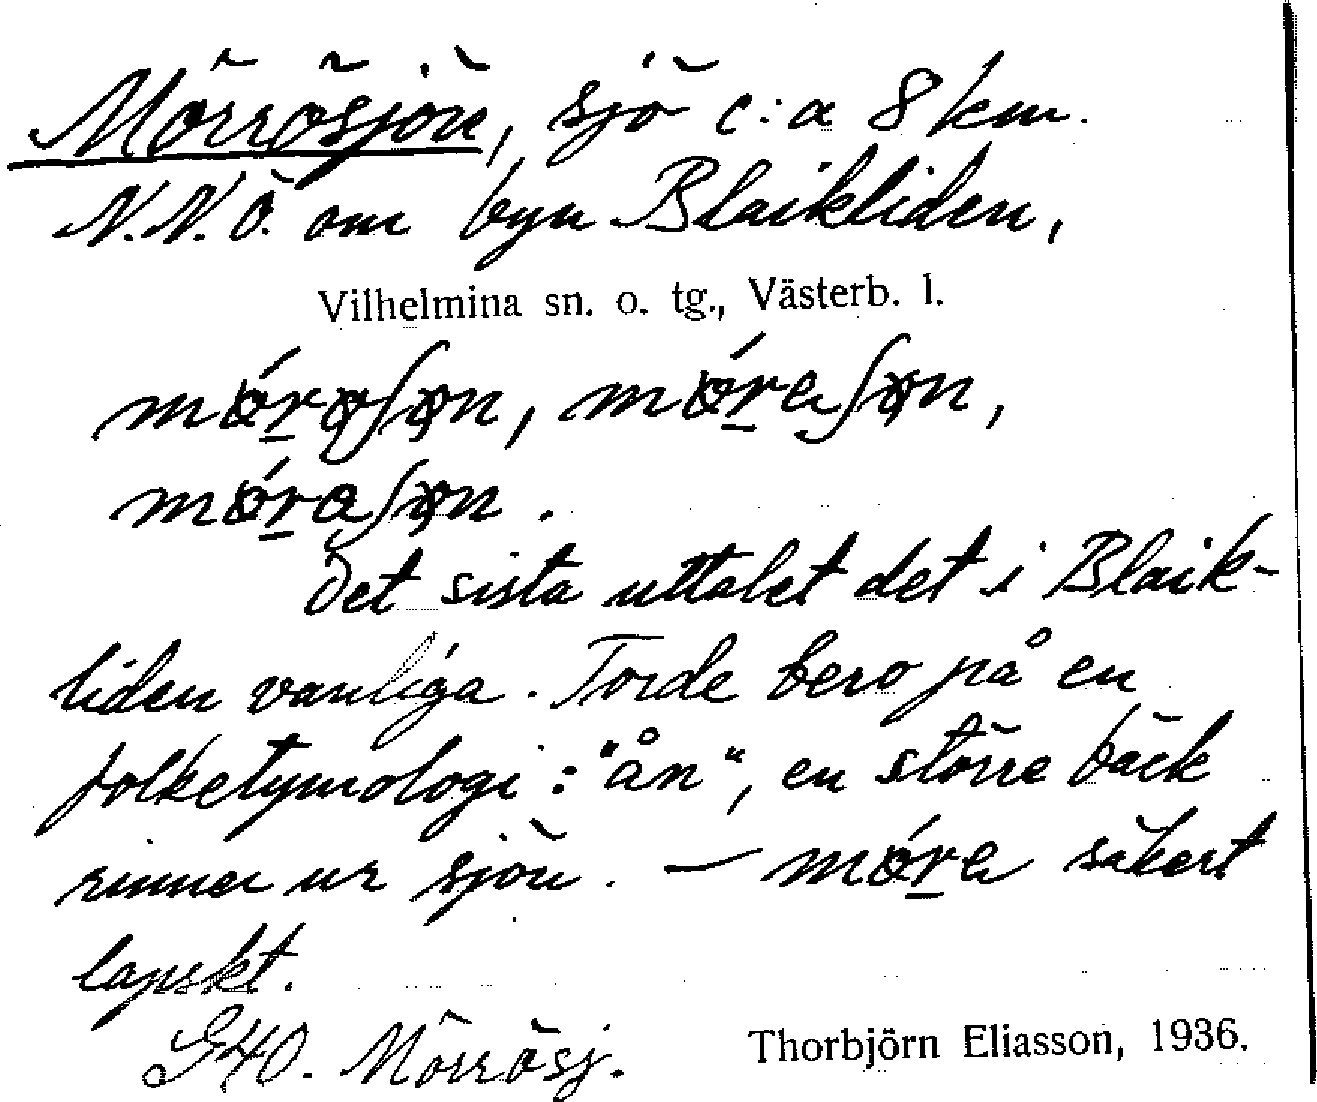 Mörrösjön, sjö c:a 8 km.
N.N.Ö. om byn Blaikliden,
Vilhelmina sn. o. tg., Västerb. l.
Det sista uttalet det i Blaik-
liden vanliga. Torde bero på en
folketymologi: "ån", en större bäck
rinner ur sjön. — säkert
lapskt.
G40. Mörrösj.
Thorbjörn Eliasson, 1936.